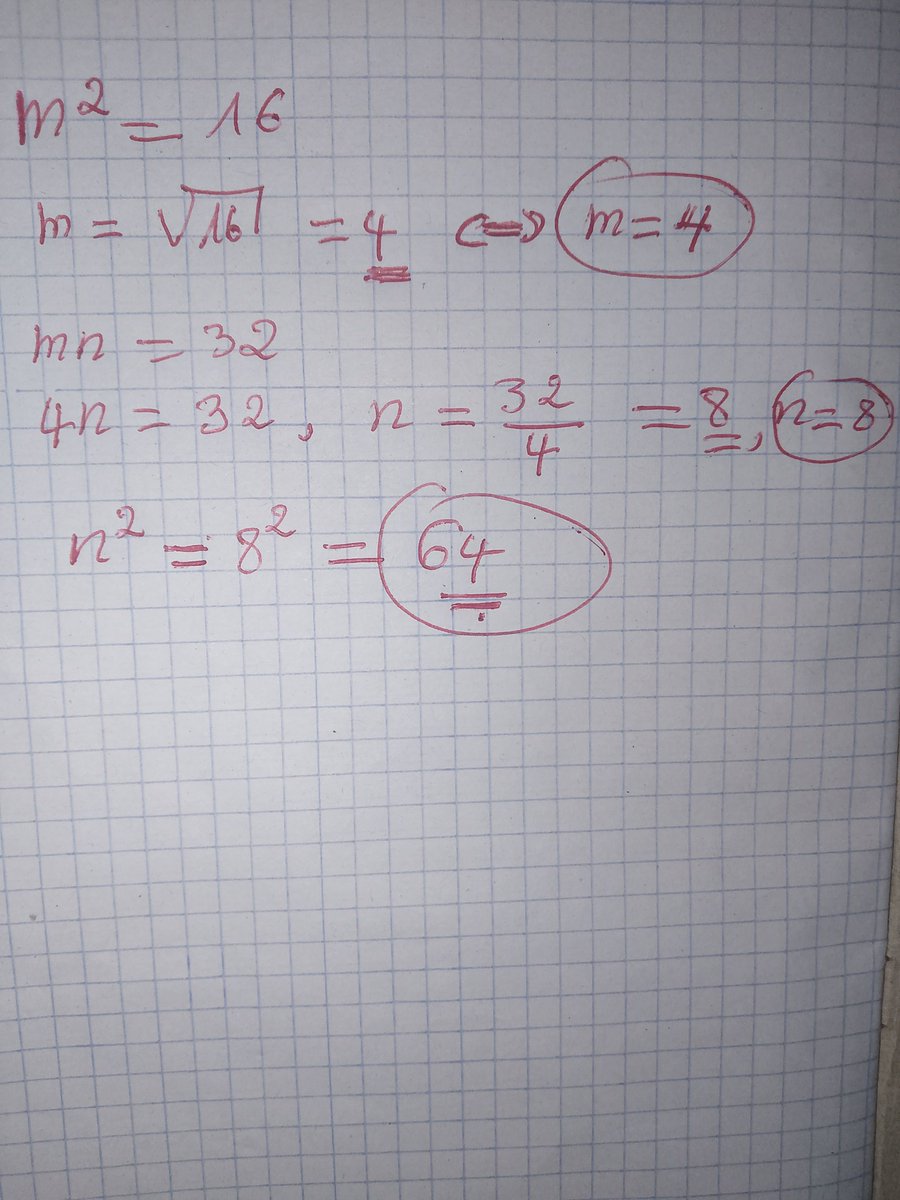 m² = 16
m = √16 = 4 <=> m = 4
mn = 32
4n = 32, n = 32/4 = 8, n = 8
n² = 8² = 64